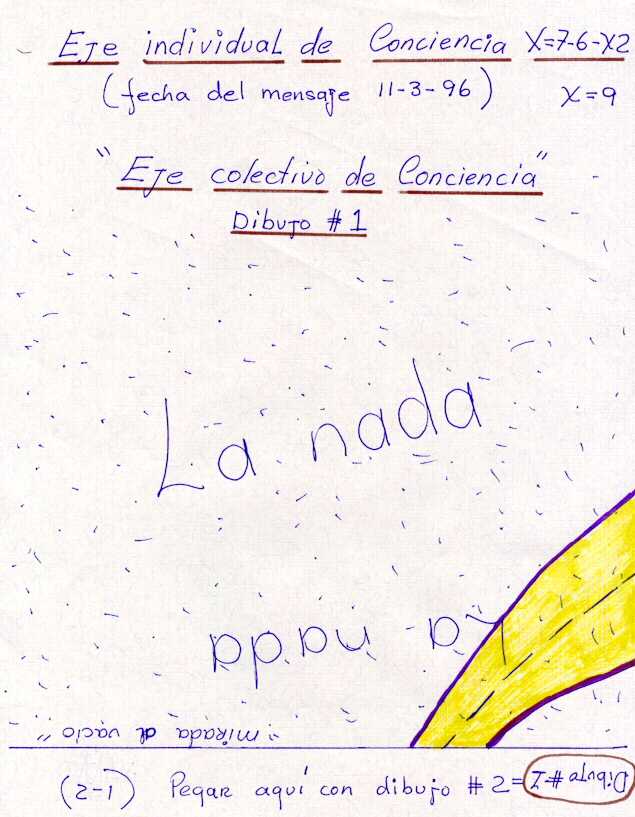 Eje individual de Conciencia X=7-6-X2
(fecha del mensaje 11-3-96) X=9
"Eje colectivo de Conciencia"
Dibujo #1
La nada
La nada
"mirada al vacio"
(2-1) Pegar aquí con dibujo #2= Dibujo #-1